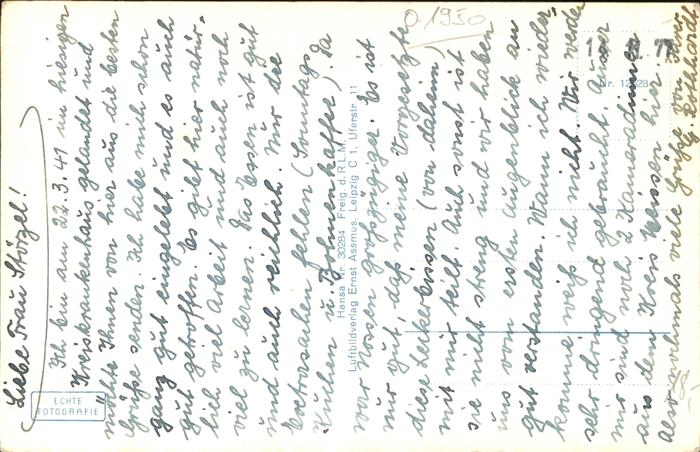 Liebe Frau Störzel!
Ich bin am 22.3.41 im hiesigen
Kreiskrankenhaus gelandet und
möchte Ihnen von hier aus die besten
Grüße senden. Ich habe mich schon
ganz gut eingelebt und es auch
gut getroffen. Es gibt hier natür-
lich viel Arbeit und auch noch
viel zu lernen. Das Essen ist gut
und auch reichlich. Nur die
Extrasachen fehlen (Sonntags
Kuchen u. Bohnenkaffee). Da
war Nossen großzügiger. Es ist
nur gut, daß meine Vorgesetzte
diese Leckerbissen (von daheim)
mit mir teilt. Auch sonst ist
sie nicht streng und wir haben
uns vom ersten Augenblick an
gut verstanden. Wann ich wieder-
komme weiß ich nicht. Wir werden
sehr dringend gebraucht. Außer
mir sind noch 2 Kameradinnen
aus dem Kreis Meissen hier.
Also nochmals viele Grüße von
ECHTE
FOTOGRAFIE
Hansa Nr. 30284 Freig. d. R.L.M.
Luftbildverlag Ernst Assmus, Leipzig C 1, Uferstr. 11
0.1950
Nr. 12628
18,-